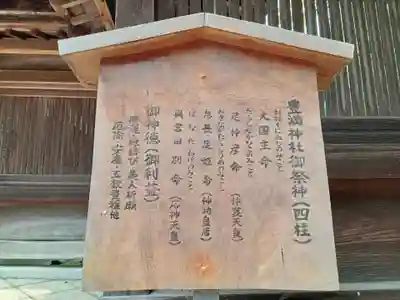 豊満神社御祭神（四柱）
おおくにぬしのみこと
大国主命
たらしなかつひこのみこと
足仲彦命（仲哀天皇）
おきながたらしひめのみこと
息長足姫命（神功皇后）
ほむたわけのみこと
誉田別命（応神天皇）
御神徳（御利益）
開運・縁結び・美人祈願
厄除・安産・五穀豊穣他